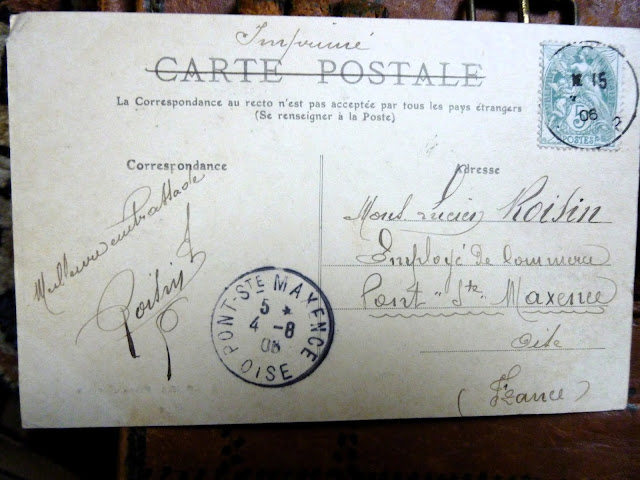 Imprimé
CARTE POSTALE
La Correspondance au recto n'est pas acceptée par tous les pays étrangers
(Se renseigner à la Poste)
Correspondance
Adresse
Mons Lucien Roisin
Employé de Commerce
Pont "Ste Maxence
Oise
(France)
Meilleure
Roisin
PONT-STE MAXENCE
5 *
4 -8
06
OISE
15
06
5
POSTES